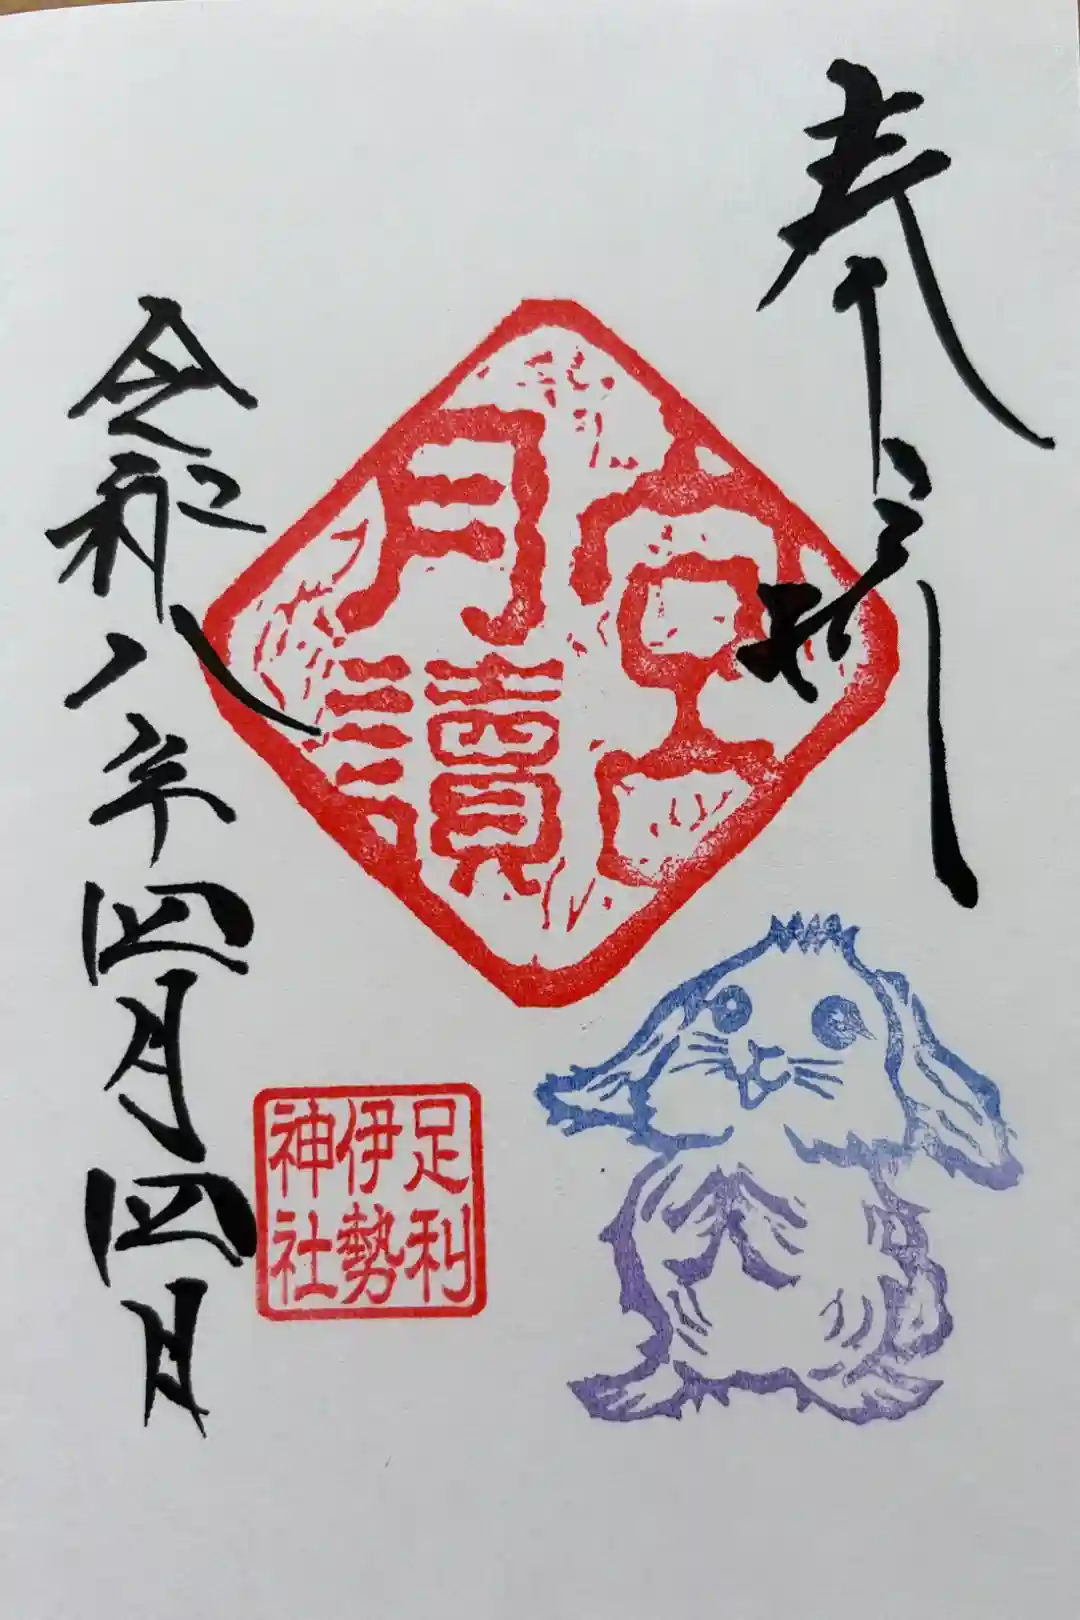 奉拝
宮
月讀
足利
伊勢
神社
令和八年四月四日